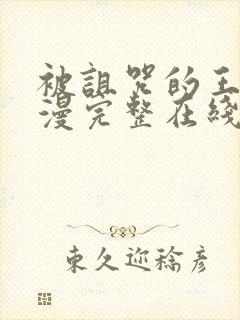 被詛咒的王
漫完整在綫
東久迩稔彦